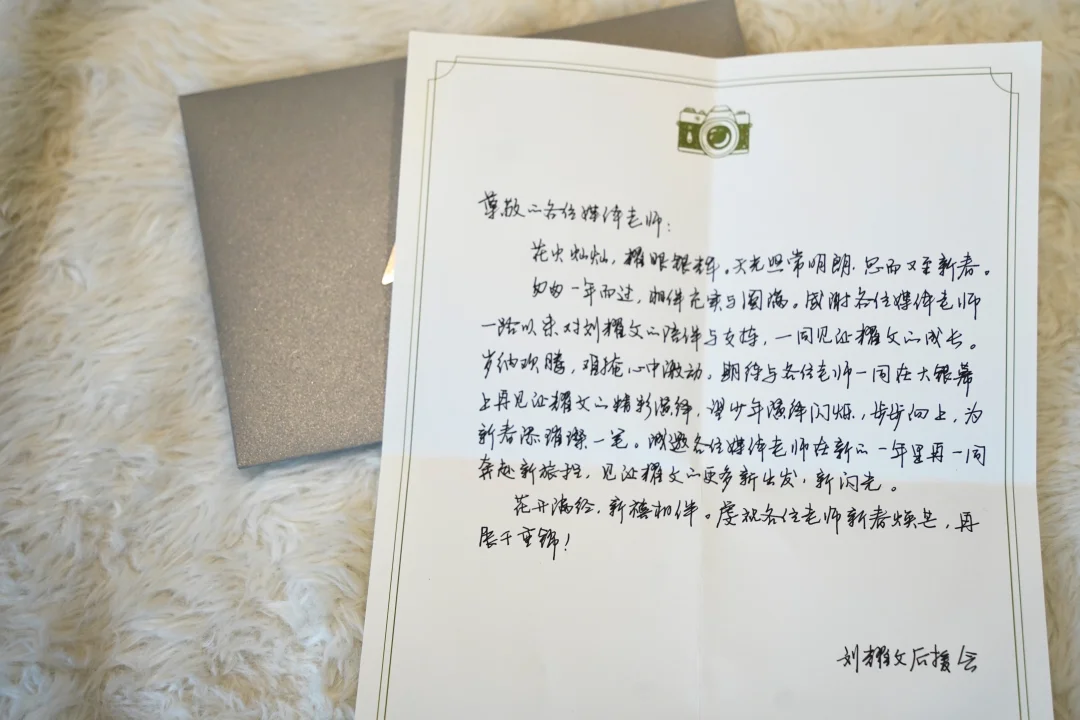 尊敬的各位媒体老师：
花火灿灿，耀眼银辉。天光照常明朗，忽而又至新春。
匆匆一年而过，相伴充实与圆满。感谢各位媒体老师
一路以来对刘耀文的陪伴与支持，一同见证耀文的成长。
岁纳欢腾，难掩心中激动，期待与各位老师一同在大银幕
上再见证耀文的精彩演绎，望少年演绎闪烁，步步向上，为
新春添璀璨一笔。诚邀各位媒体老师在新的一年里再一同
奔赴新旅程，见证耀文的更多新出发，新闪光。
花开满径，新禧相伴。虔祝各位老师新春焕芒，再
展千重锦！
刘耀文后援会